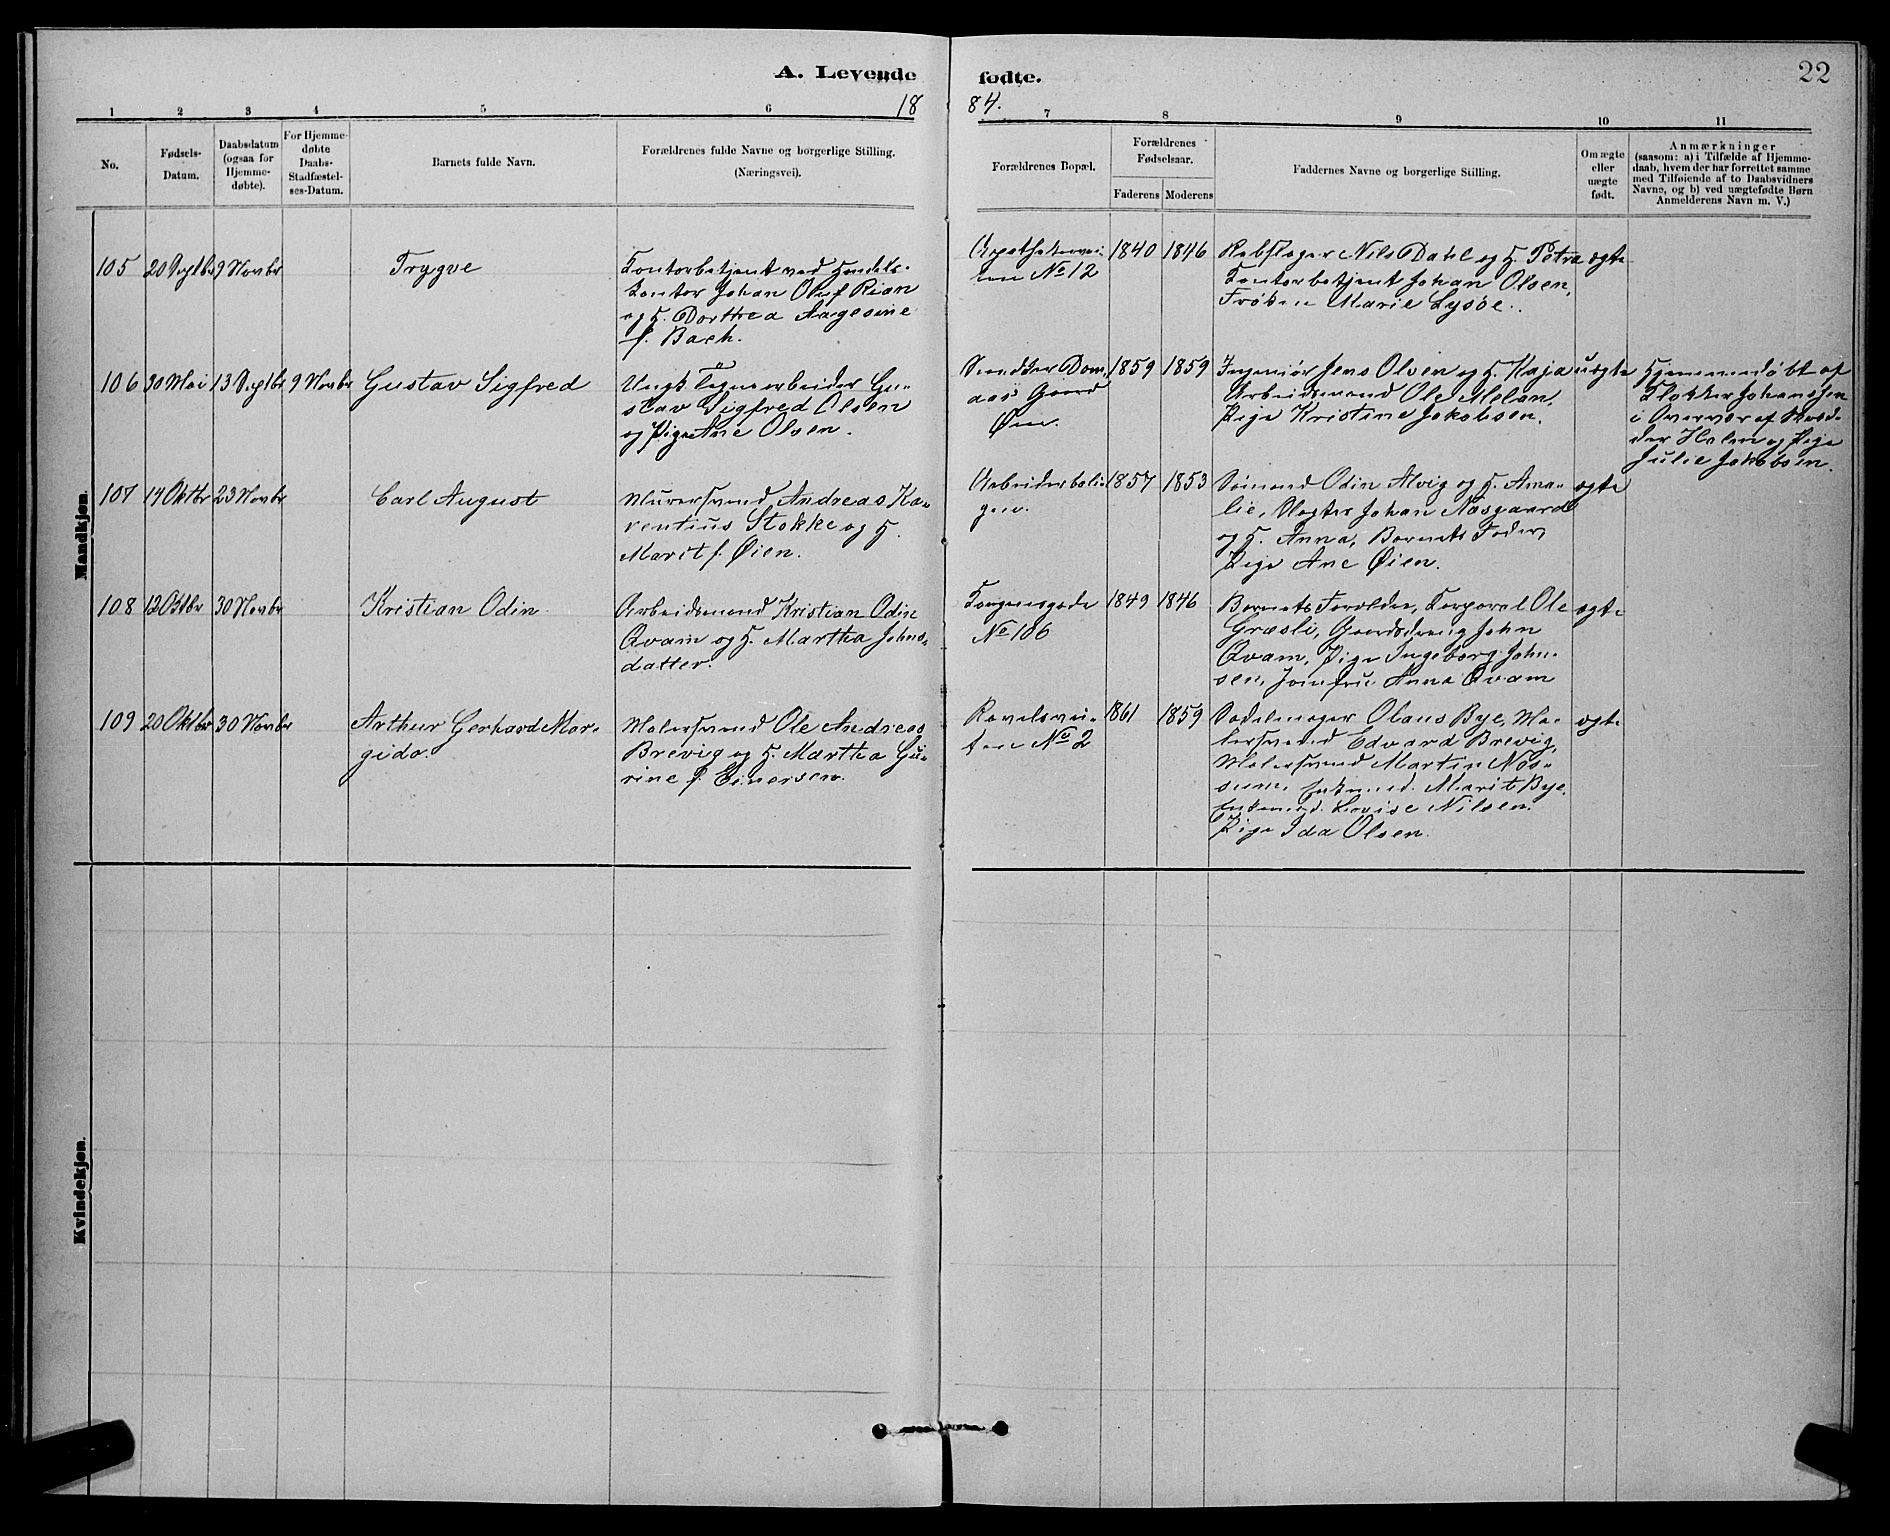 A. Levende fødte.
22
1884.
1 2 3 4 5 6 7 8 9 10 11
No.
Fødsels-
Datum.
Daabsdatum
(ogsaa for
Hjemme-
døbte).
For Hjemme-
døbte
Daabs-
Stadfæstel-
ses-Datum.
Barnets fulde Navn.
Forældrenes fulde Navne og borgerlige Stilling.
(Næringsvei).
Forældrenes Bopæl.
Forældrenes
Fødselsaar.
Faderens Moderens
Faddernes Navne og borgerlige Stilling.
Om ægte
eller
uægte
født.
Anmærkninger
(saasom: a) i Tilfælde af Hjemme-
daab, hvem der har forrettet samme
med Tilføiende af to Daabsvidners
Navne, og b) ved uægtefødte Børn
Anmelderens Navn m. V.)
Mandkjøn.
105
20 Septbr
9 Novbr
Trygve
Kontorbetjent ved Handels-
kontor Johan Oluf Rian
og H. Dorthea Aagesine
f. Bach.
Apothekervei-
ten No 12
1840
1846
Rebslager Nils Dahl og H. Petra
Kontorbetjent Johan Olsen,
Frøken Marie Lysøe.
ægte
106
30 Mai
13 Septbr
9 Novbr
Gustav Sigfred
Ungk Tegnearbeider Gu-
stav Sigfred Olsen
og Pige Ane Olsen.
Snedker Dom
aas Gaard
Øen.
1859
1859
Ingeniør Jens Olsen og H. Kaja
Arbeidsmand Ole Melan,
Pige Kristine Jakobsen.
uægte
Hjemmedøbt af
Klokker Johanssen
i Overvær af
Julie Jakobsen.
107
14 Oktbr
23 Novbr
Carl August
Murersvend Andreas Ka-
rentius Stokke og H.
Marit f. Øien.
Arbeiderboli-
gen.
1857
1853
Sømand Odin Alvig og H. Ama-
lie, Slagter Johan Næsgaard
og H. Anna, Barnets Fader,
Pige Ane Øien.
ægte
108
12 Oktbr
30 Novbr
Kristian Odin
Arbeidsmand Kristian Odin
Qvam og H. Martha Johns-
datter.
Kongensgade
No 106
1849
1846
Barnets Forældre, Korporal Ole
Græsli, Gaardsdreng John
Qvam, Pige Ingeborg John-
sen, Jomfru Anna Qvam
ægte
109
20 Oktbr
30 Novbr
Arthur Gerhard Mar-
gido.
Malersvend Ole Andreas
Brevig og H. Martha Gu-
rine f. Einersen.
Ravelsvei-
ten No 2
1861
1859
Sadelmager Olaus Bye, Ma-
lersvend Edvard Brevig,
Malersvend Martin Næs-
sum, Enkemd. Marit Bye,
Enkemd. Lovise Nilsen.
Pige Ida Olsen.
ægte
Kvindekjøn.